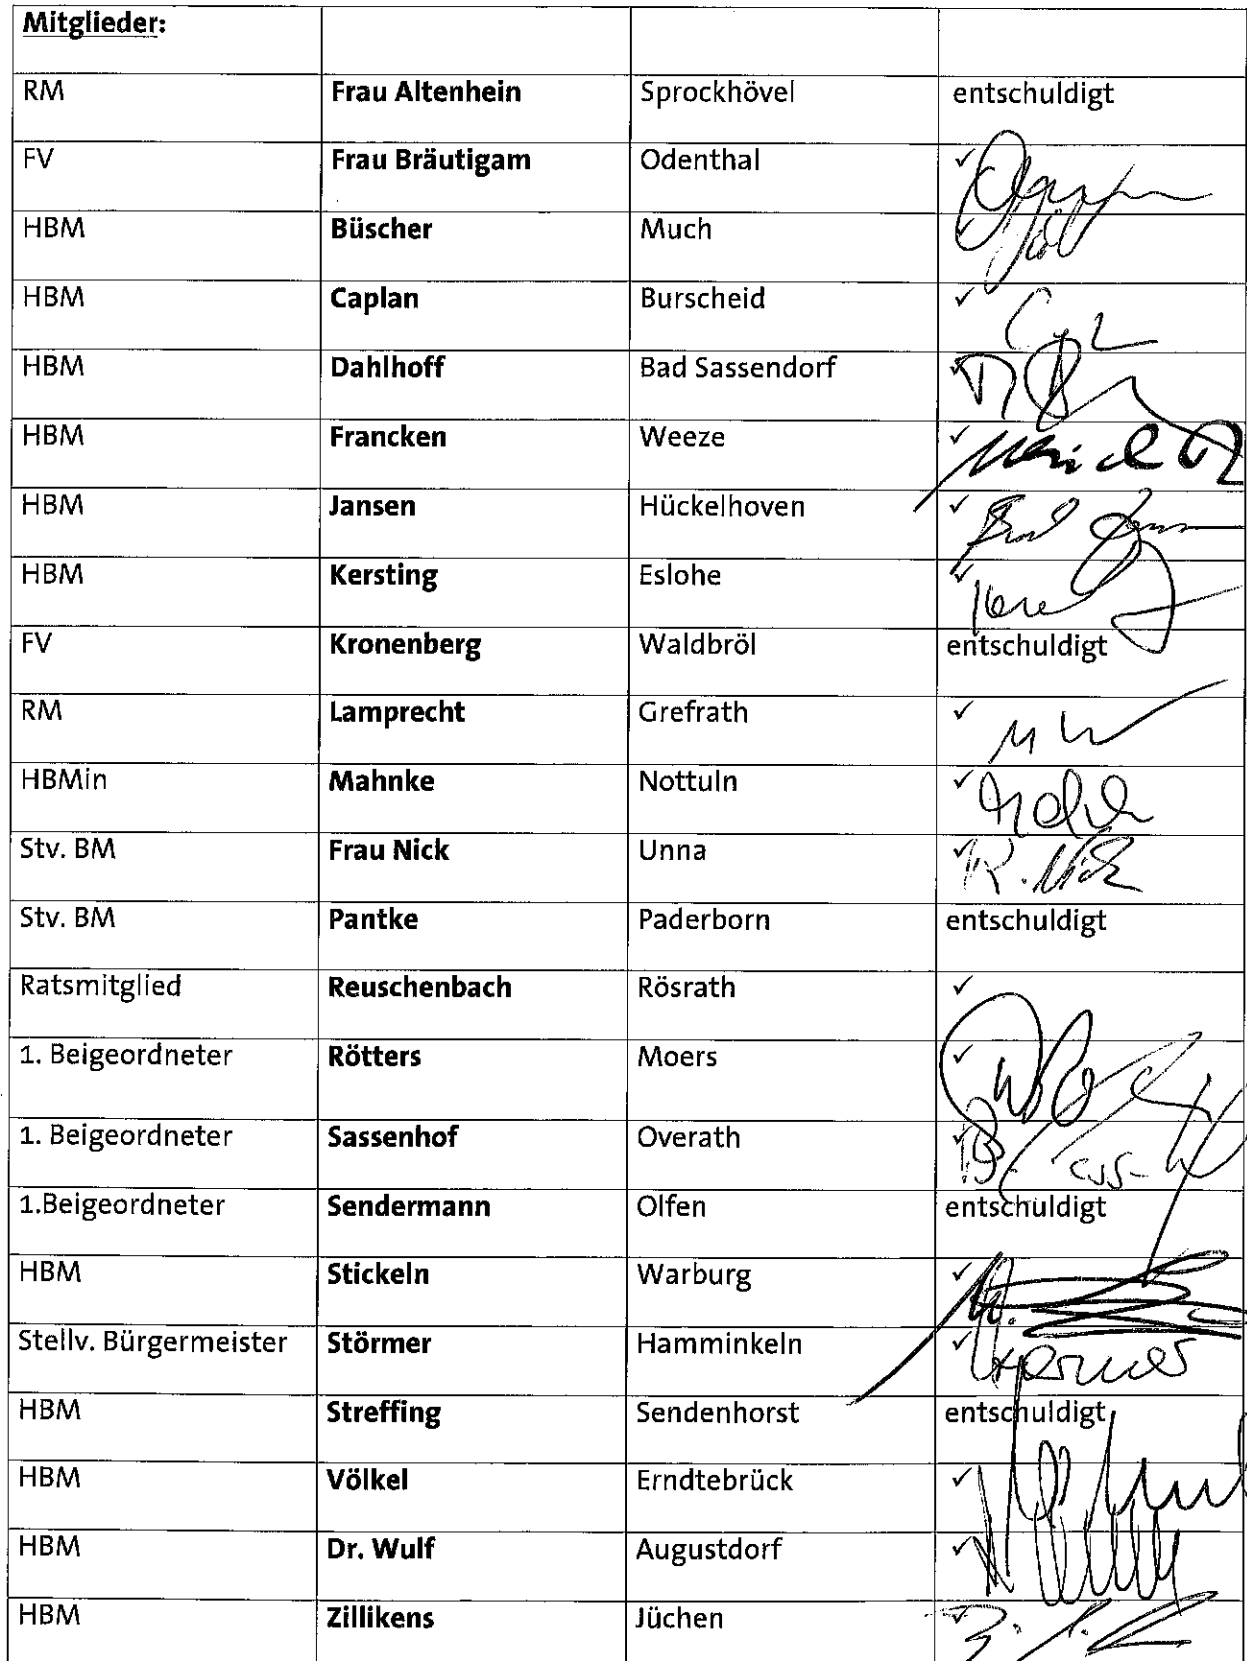 Mitglieder:
RM Frau Altenhein Sprockhövel entschuldigt
FV Frau Bräutigam Odenthal ✓
HBM Büscher Much ✓
HBM Caplan Burscheid ✓
HBM Dahlhoff Bad Sassendorf ✓
HBM Francken Weeze ✓
HBM Jansen Hückelhoven ✓
HBM Kersting Eslohe ✓
FV Kronenberg Waldbröl entschuldigt
RM Lamprecht Grefrath ✓
HBMin Mahnke Nottuln ✓
Stv. BM Frau Nick Unna ✓ R. Nick
Stv. BM Pantke Paderborn entschuldigt
Ratsmitglied Reuschenbach Rösrath ✓
1. Beigeordneter Rötters Moers ✓
1. Beigeordneter Sassenhof Overath ✓
1.Beigeordneter Sendermann Olfen entschuldigt
HBM Stickeln Warburg ✓
Stellv. Bürgermeister Störmer Hamminkeln ✓
HBM Streffing Sendenhorst entschuldigt
HBM Völkel Erndtebrück ✓
HBM Dr. Wulf Augustdorf ✓
HBM Zillikens Jüchen ✓